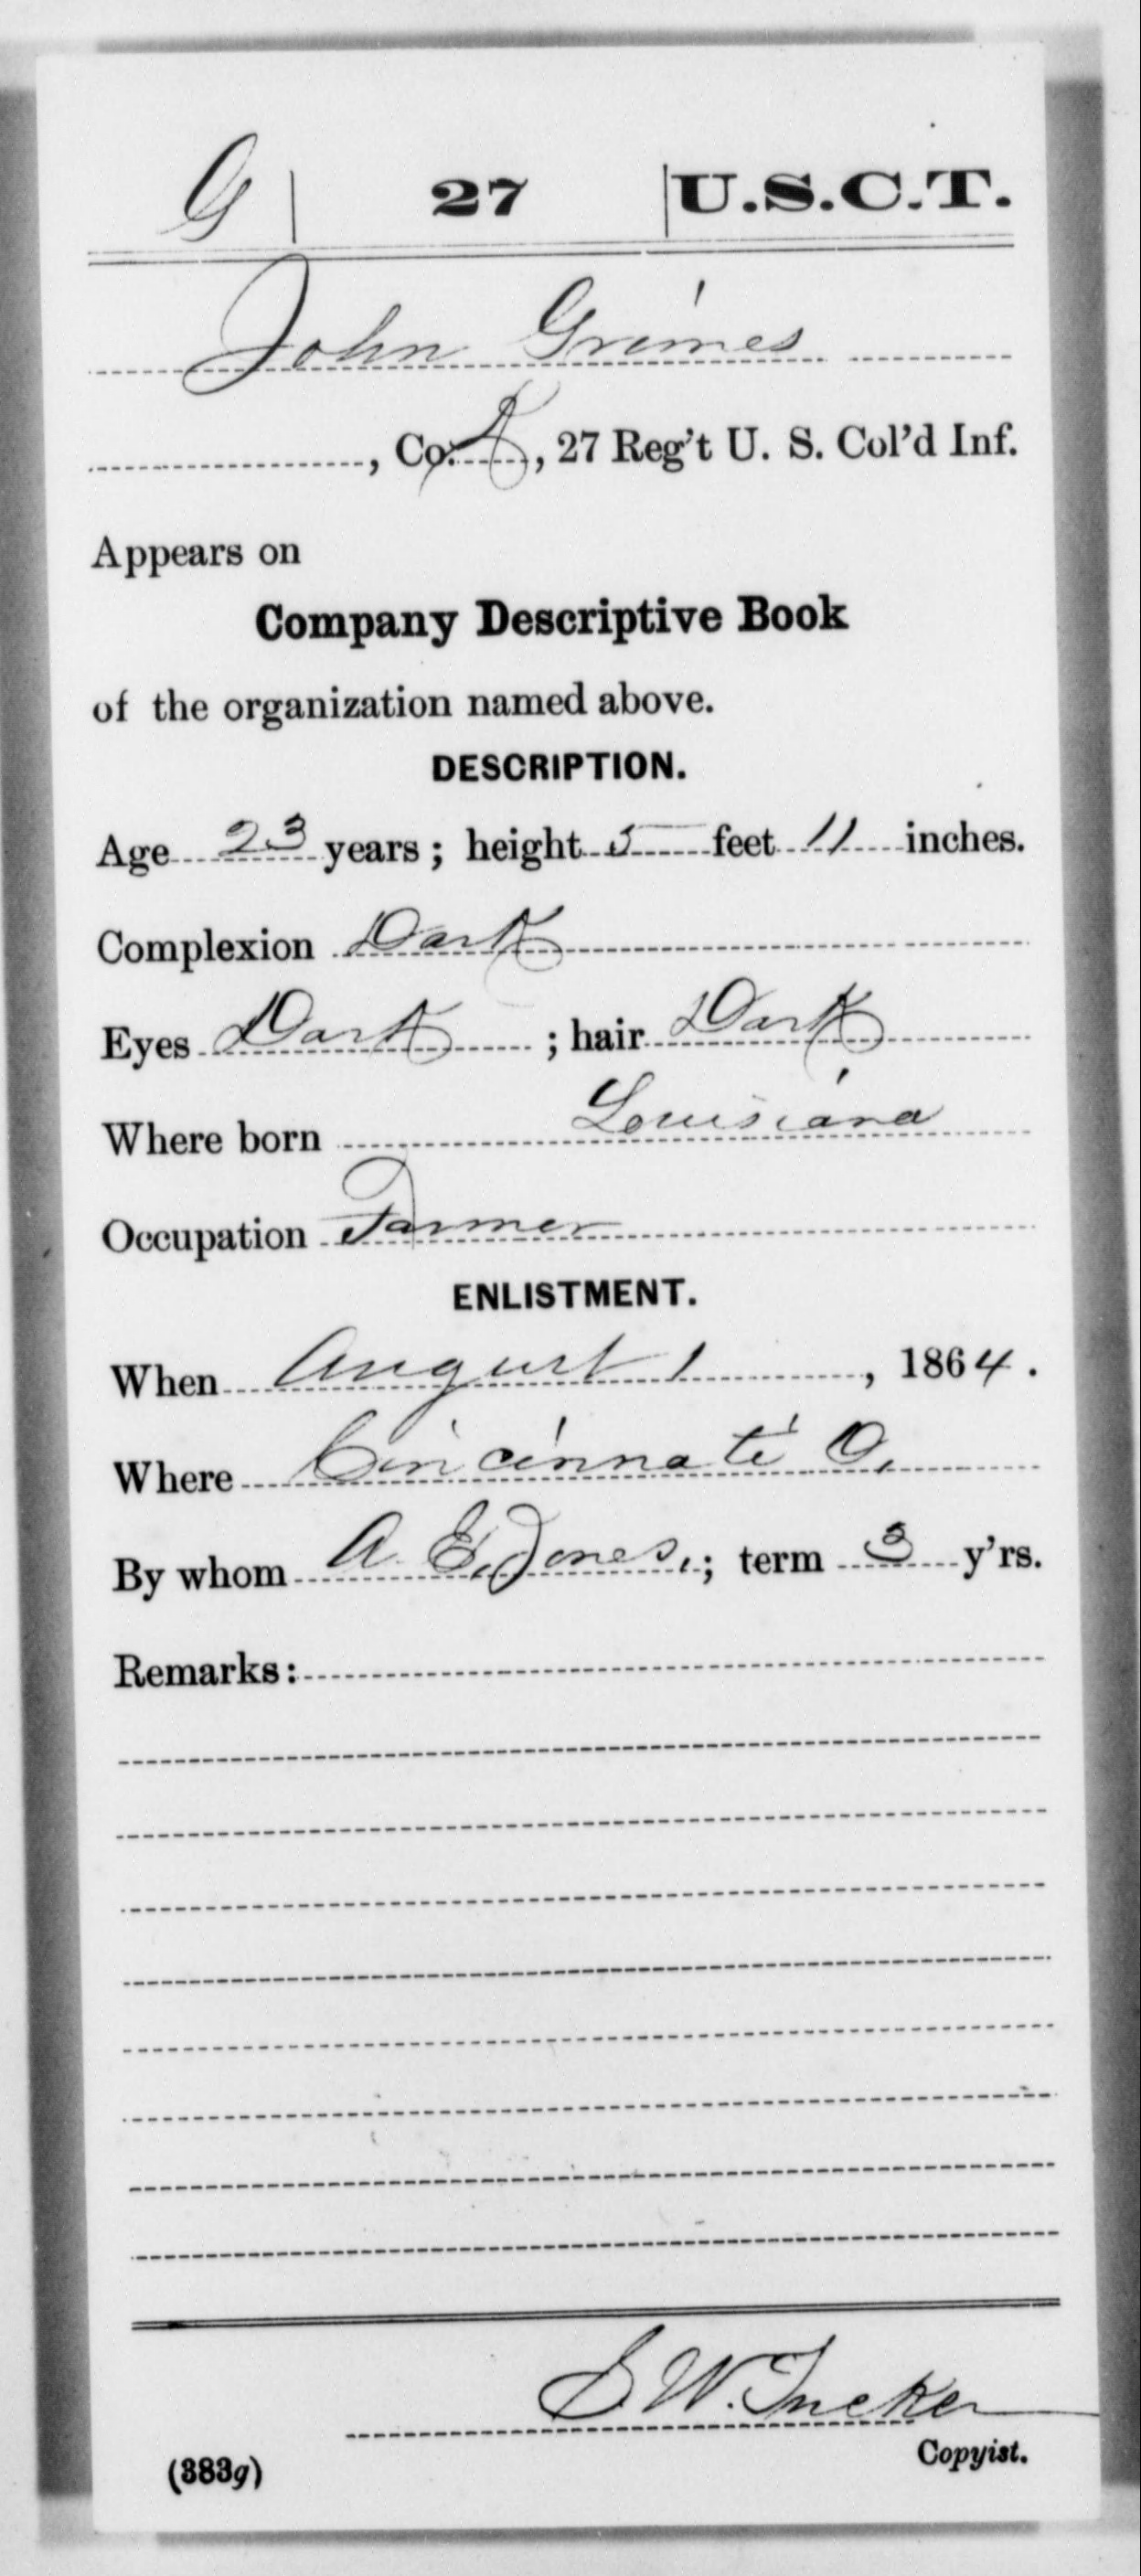 G | 27 | U.S.C.T.
John Grimes
, Co. K, 27 Reg't U. S. Col'd Inf.
Appears on
Company Descriptive Book
of the organization named above.
DESCRIPTION.
Age 23 years; height 5 feet 11 inches.
Complexion Dark
Eyes Dark; hair Dark
Where born Louisiana
Occupation Farmer
ENLISTMENT.
When August 1, 1864.
Where Cincinnati O,
By whom A. E. Jones,; term 3 y'rs.
Remarks:
S W. Tucker
Copyist.
(383g)